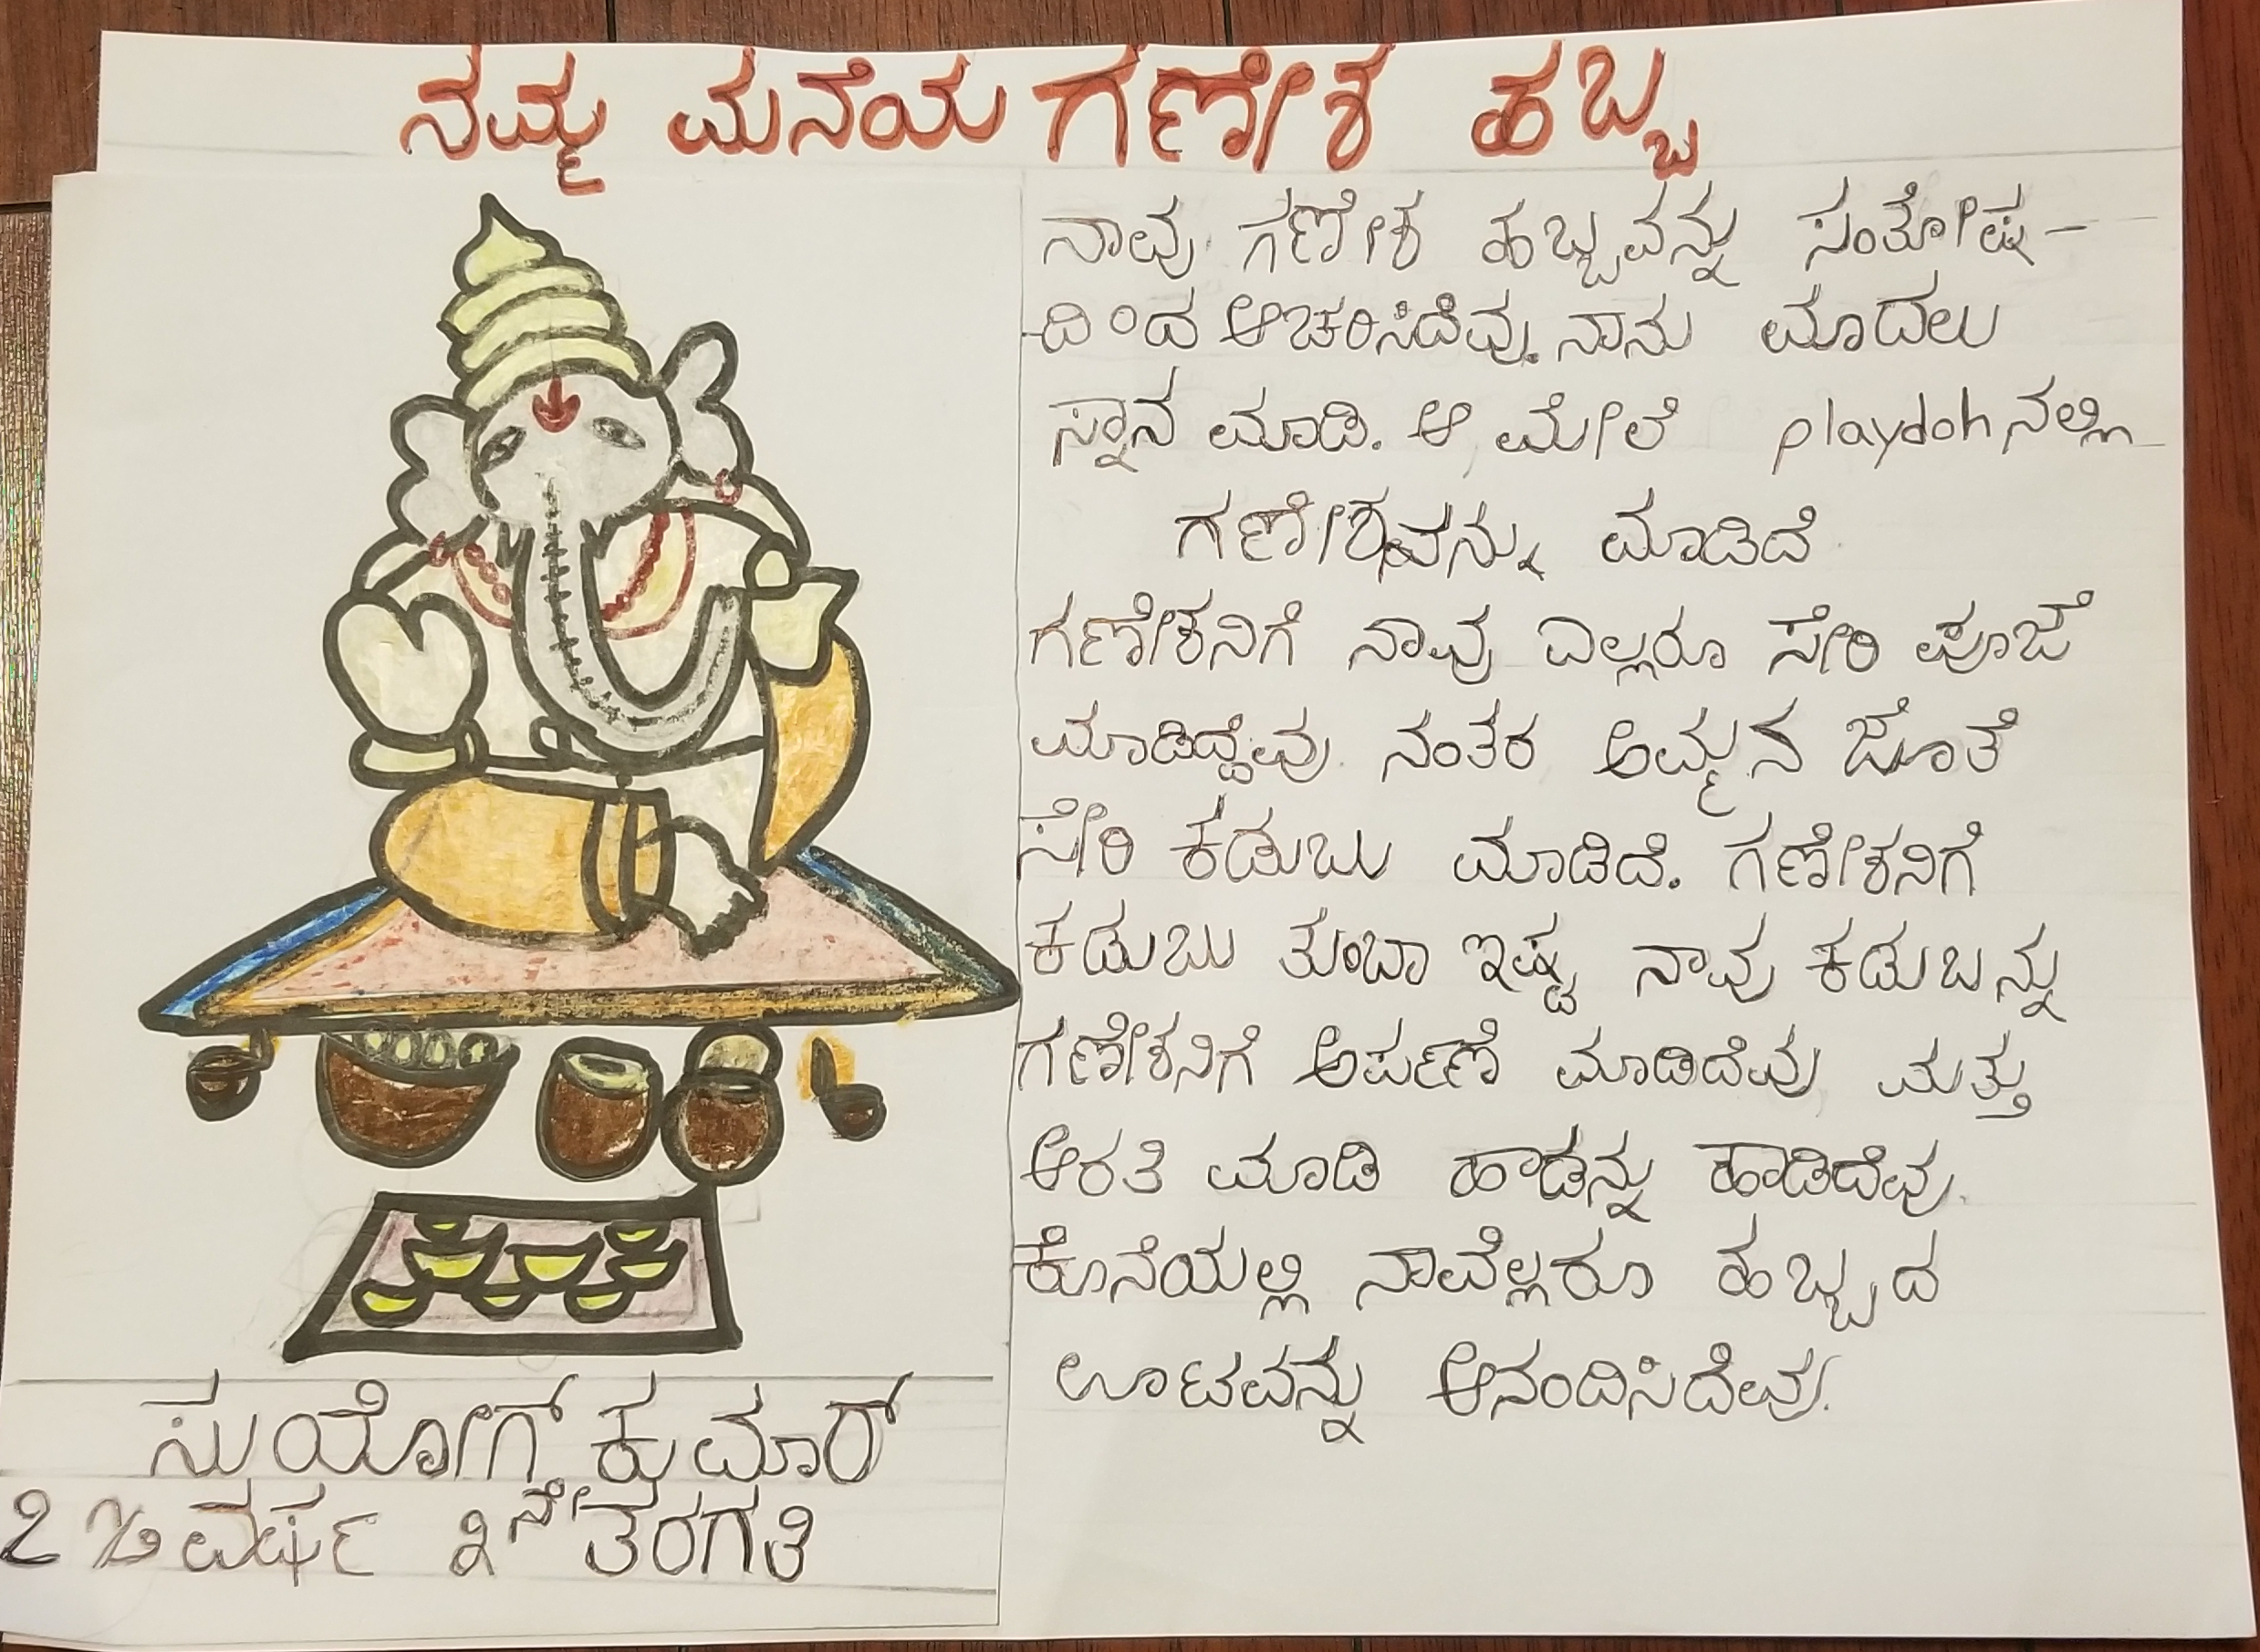 ನಮ್ಮ ಮನೆಯ ಗಣೇಶ ಹಬ್ಬ
ನಾವು ಗಣೇಶ ಹಬ್ಬವನ್ನು ಸಂತೋಷ-
ದಿಂದ ಆಚರಿಸಿದೆವು. ನಾನು ಮೊದಲು
ಸ್ನಾನ ಮಾಡಿ. ಆ ಮೇಲೆ playdohನಲ್ಲಿ
ಗಣೇಶವನ್ನು ಮಾಡಿದೆ
ಗಣೇಶನಿಗೆ ನಾವು ಎಲ್ಲರೂ ಸೇರಿ ಪೂಜೆ
ಮಾಡಿದ್ದೆವು. ನಂತರ ಅಮ್ಮನ ಜೊತೆ
ಸೇರಿ ಕಡುಬು ಮಾಡಿದೆ. ಗಣೇಶನಿಗೆ
ಕಡುಬು ತುಂಬಾ ಇಷ್ಟ ನಾವು ಕಡುಬನ್ನು
ಗಣೇಶನಿಗೆ ಅರ್ಪಣೆ ಮಾಡಿದೆವು ಮತ್ತು
ಆರತಿ ಮಾಡಿ ಹಾಡನ್ನು ಹಾಡಿದೆವು.
ಕೊನೆಯಲ್ಲಿ ನಾವೆಲ್ಲರೂ ಹಬ್ಬದ
ಊಟವನ್ನು ಆನಂದಿಸಿದೆವು.
ಸುಯೋಗ್ ಕುಮಾರ್
ವರ್ಷ ೩ನೇ ತರಗತಿ